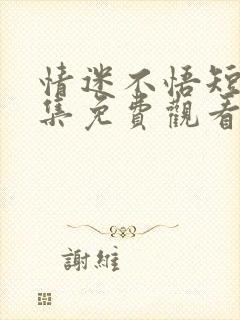 情迷不悟短
集免費觀看
謝維